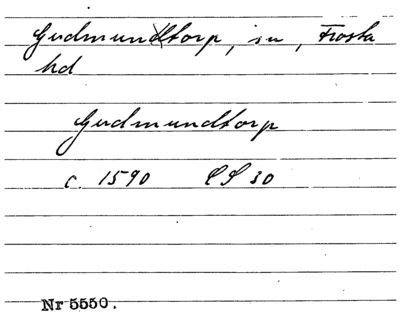 Gudmundtorp, sn, Frosta
hd
Gudmundtorp
c. 1590 CS 30
Nr 5550.